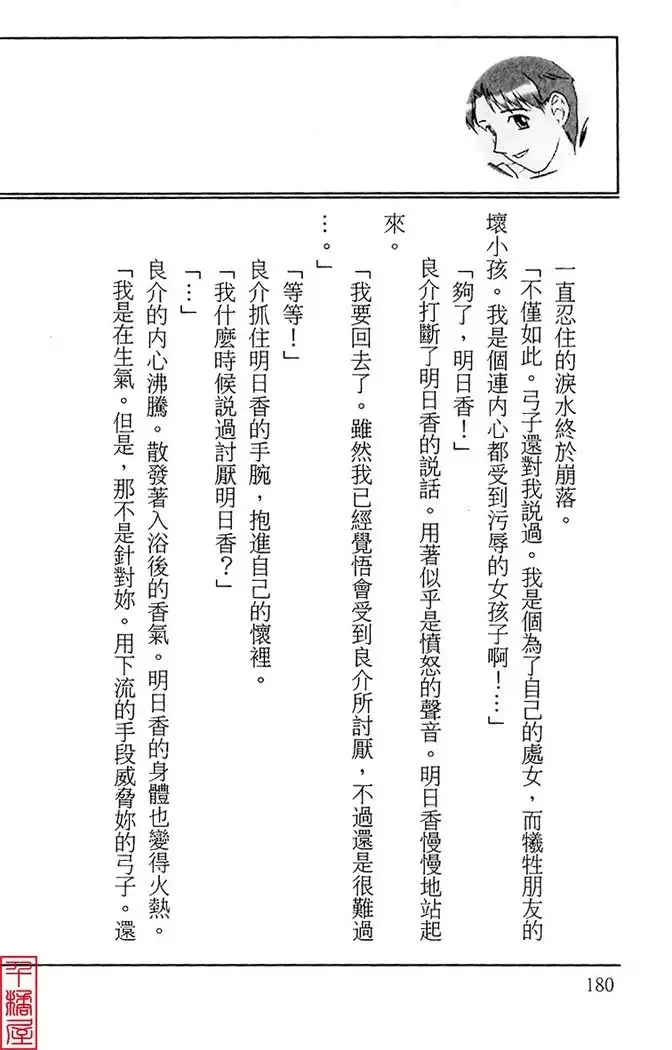 一直忍住的淚水終於崩落。
「不僅如此。弓子還對我說過。我是個為了自己的處女，而犧牲朋友的
壞小孩。我是個連內心都受到污辱的女孩子啊！……」
「夠了，明日香！」
良介打斷了明日香的說話。用著似乎是憤怒的聲音。明日香慢慢地站起
來。
「我要回去了。雖然我已經覺悟會受到良介所討厭，不過還是很難過
…。」
「等等！」
良介抓住明日香的手腕，抱進自己的懷裡。
「我什麼時候說過討厭明日香？」
「…」
良介的內心沸騰。散發著入浴後的香氣。明日香的身體也變得火熱。
「我是在生氣。但是，那不是針對妳。用下流的手段威脅妳的弓子。還
180
千橘屋